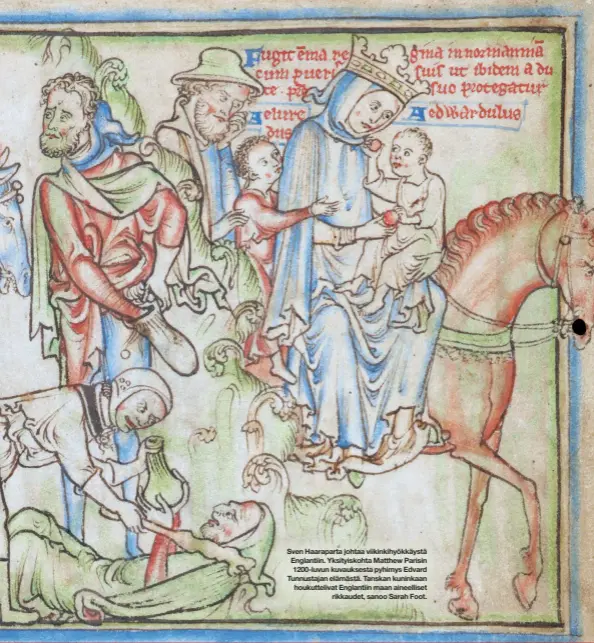 Fugit ēma re gina in normanniā
cum pueri suis ut ibidem a du
suo protegatur
Aelure Aedwardulus
dus
Sven Haaraparta johtaa viikinkihyökkäystä
Englantiin. Yksityiskohta Matthew Parisin
1200-luvun kuvauksesta pyhimys Edvard
Tunnustajan elämästä. Tanskan kuninkaan
houkuttelivat Englantiin maan aineelliset
rikkaudet, sanoo Sarah Foot.